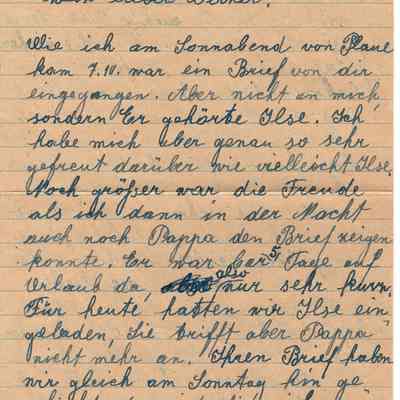 lieber Werner!
Wie ich am Sonnabend von Plaue
kam 7.10. war ein Brief von dir
eingegangen. Aber nicht an mich,
sondern Er gehörte Ilse. Ich
habe mich aber genau so sehr
gefreut darüber wie vielleicht Ilse.
Noch größer war die Freude
als ich dann in der Nacht
auch noch Pappa den Brief zeigen
konnte. Er war 5 Tage auf
Urlaub da, also nur sehr kurz.
Für heute hatten wir Ilse ein
geladen, Sie trifft aber Pappa
nicht mehr an. Ihren Brief haben
wir gleich am Sonntag hin ge